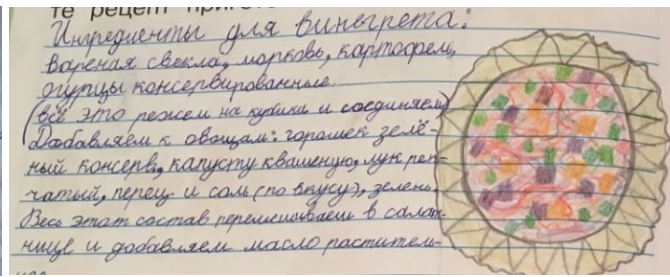 те рецепт приго
Ингредиенты для винегрета:
варёная свекла, морковь, картофель,
огурцы консервированные.
(всё это режем на кубики и соединяем)
Добавляем к овощам: горошек зелё-
ный консерв., капусту квашеную, лук реп-
чатый, перец и соль (по вкусу), зелень.
Весь этот состав перемешиваем в салат-
нице и добавляем масло раститель-